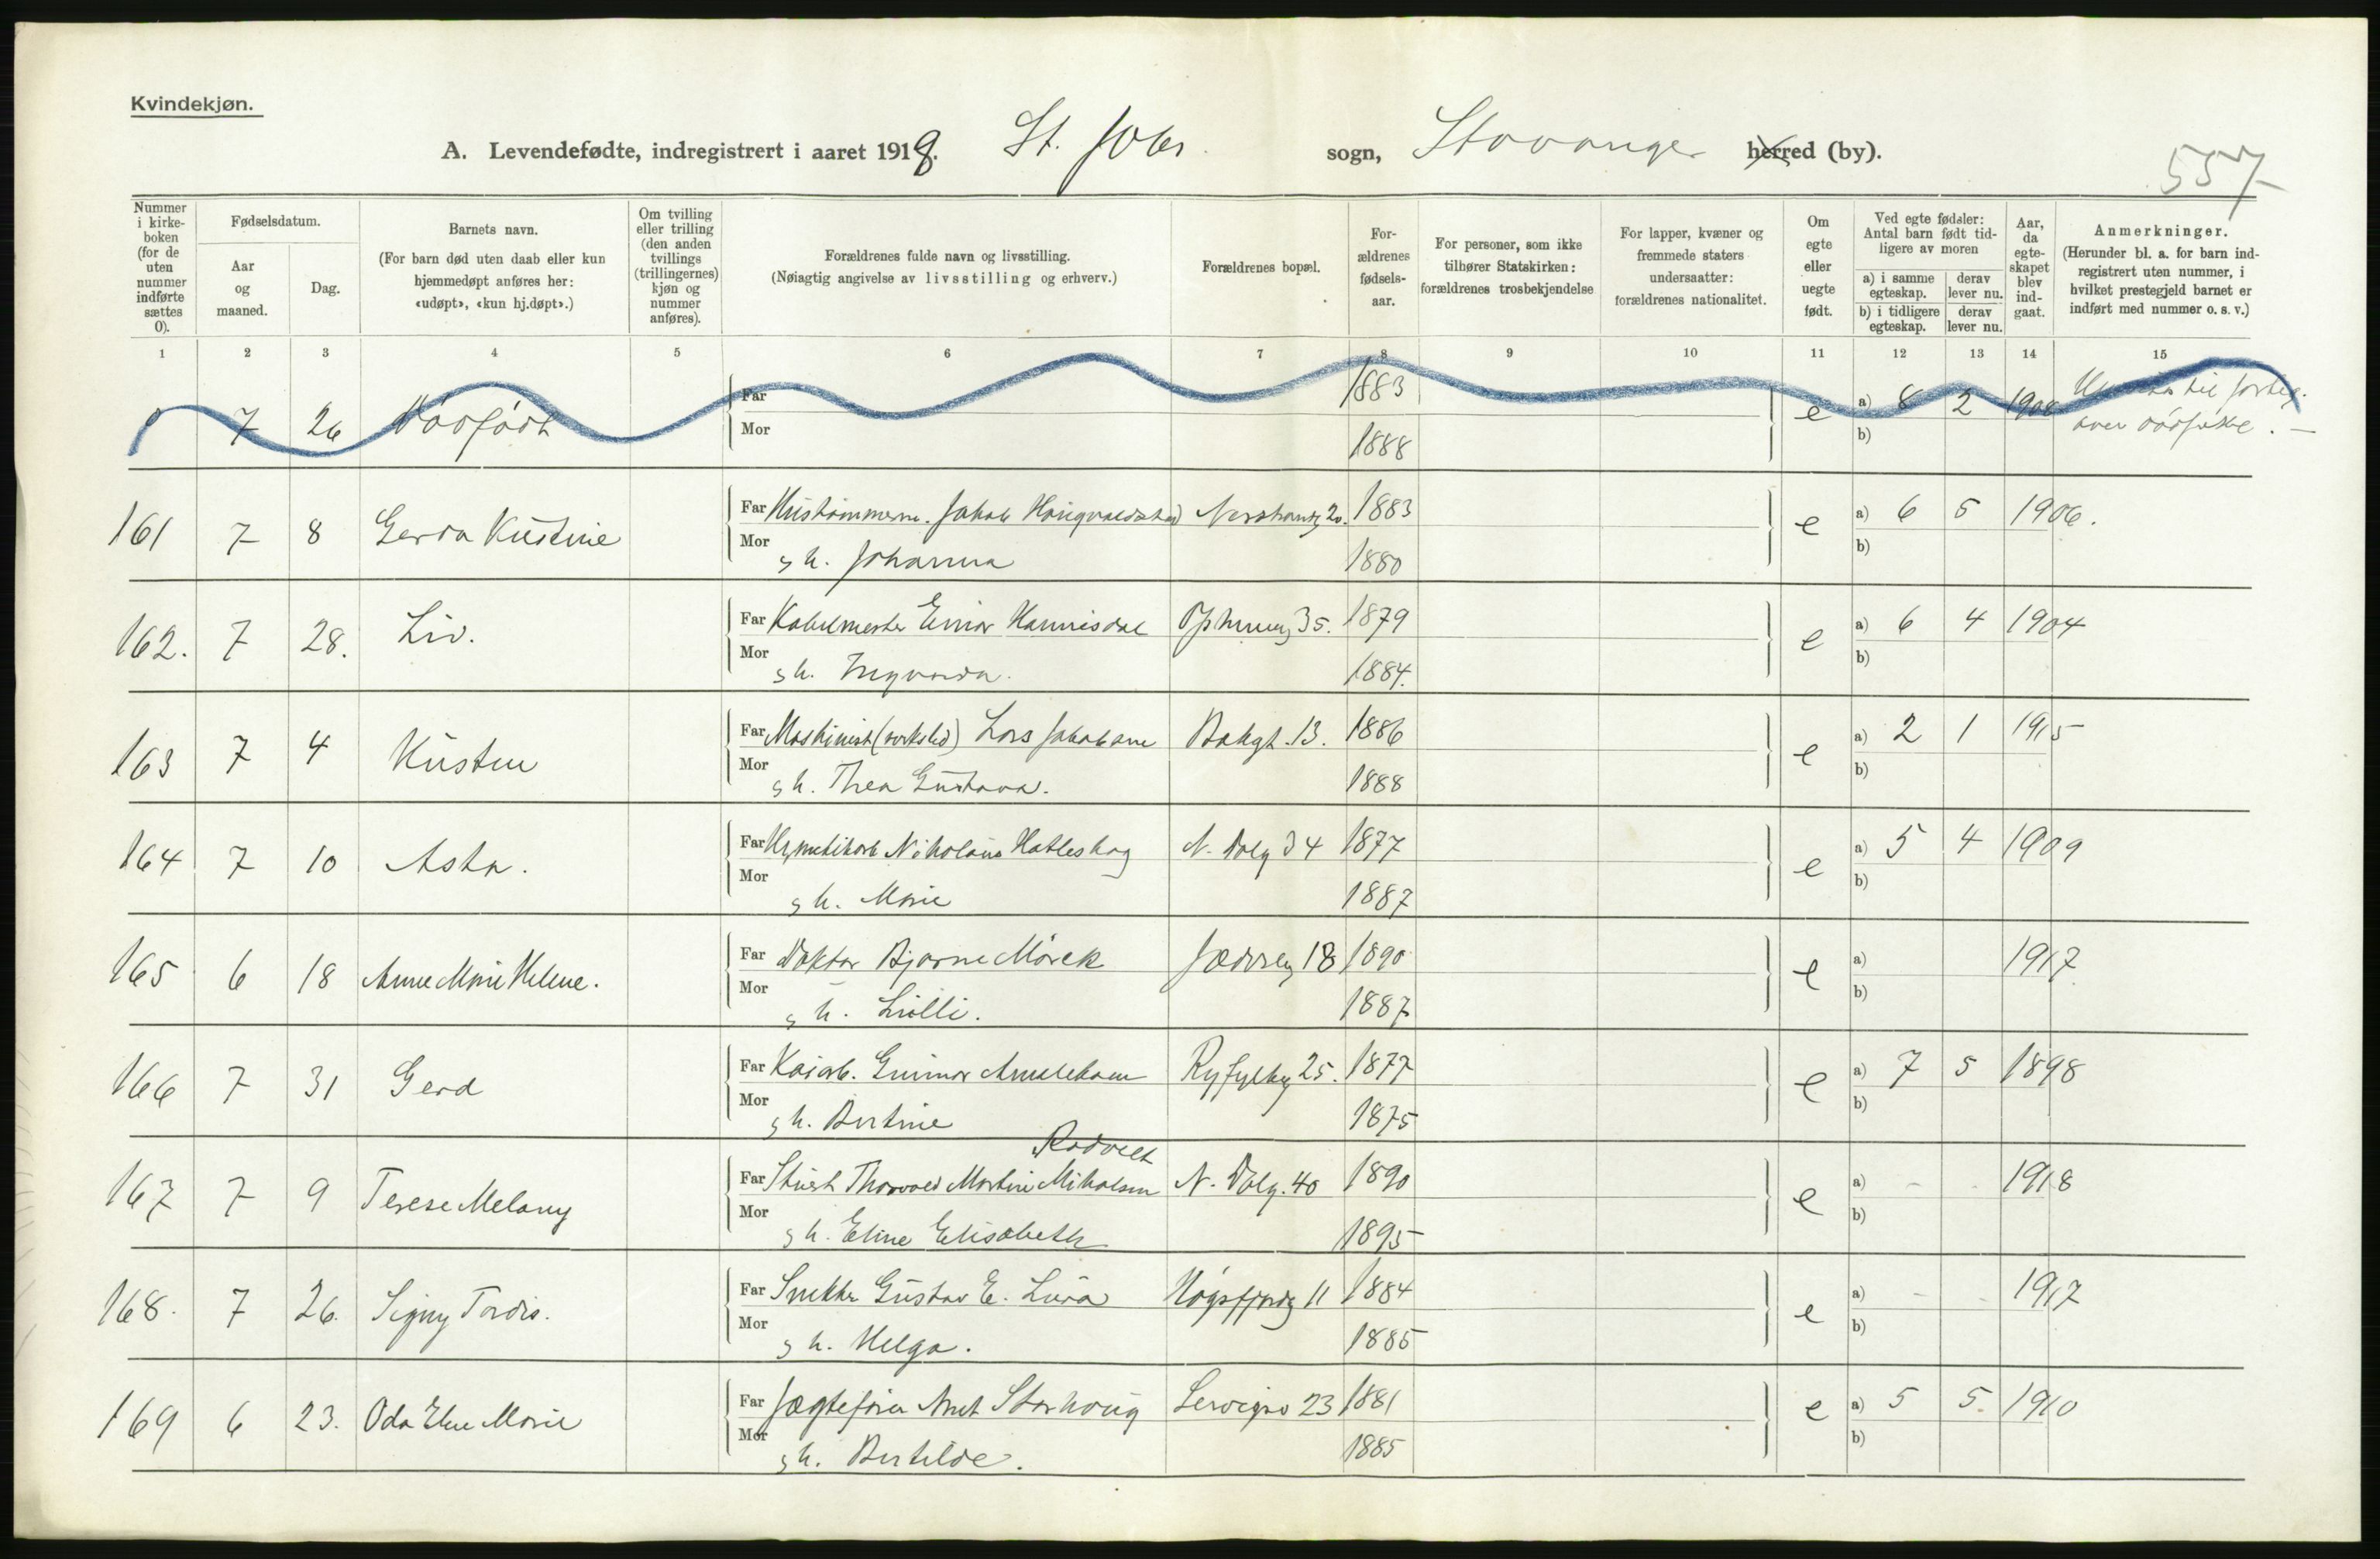 Kvindekjøn.
A. Levendefødte, indregistrert i aaret 1918. St. Joh's sogn, Stavanger herred (by).
557
Nummer i kirkeboken (for de uten nummer indførte sættes 0).
Fødselsdatum.
Aar og maaned.
Dag.
Barnets navn.
(For barn død uten daab eller kun hjemmedøpt anføres her: «udøpt», «kun hj.døpt».)
Om tvilling eller trilling (den anden tvillings (trillingernes) kjøn og nummer anføres).
Forældrenes fulde navn og livsstilling.
(Nøiagtig angivelse av livsstilling og erhverv.)
Forældrenes bopæl.
Forældrenes fødselsaar.
For personer, som ikke tilhører Statskirken: forældrenes trosbekjendelse
For lapper, kvæner og fremmede staters undersaatter: forældrenes nationalitet.
Om egte eller uegte født.
Ved egte fødsler: Antal barn født tidligere av moren
a) i samme egteskap.
derav lever nu.
b) i tidligere egteskap.
derav lever nu.
Aar, da egteskapet blev indgaat.
Anmerkninger.
(Herunder bl. a. for barn indregistrert uten nummer, i hvilket prestegjeld barnet er indført med nummer o. s. v.)
1 2 3 4 5 6 7 8 9 10 11 12 13 14 15
0 7 26 Dødfødt Far 1883 e a) 8 2 1908 til forteg.
Mor 1888 b) over dødfødte. —
161 7 8 Gerda Kristine Far Jakob Haugvaldstad 20. 1883 e a) 6 5 1906.
Mor s h. Johanna 1880 b)
162. 7 28. Liv. Far Kabelmester Einar Hannisdal 35. 1879 e a) 6 4 1904
Mor s h. Ingvarda. 1884. b)
163 7 4 Kirsten Far Maskinist (verksted) Lars Jakobsen Bakgt. 13. 1886 e a) 2 1 1915
Mor s h. Thea Gustava. 1888 b)
164 7 10 Asta. Far Hermetikarb Nikolaus Hatleskog N. Dalg 34 1877 e a) 5 4 1909
Mor s h. Marie 1887 b)
165 6 18 Anne Marie Helene. Far Doktor Bjarne Mörck Jæderg 18 1890 e a) 1917
Mor s h. Lulli. 1887 b)
166 7 31 Gerd Far Kaiarb. Gunnar Ryfylkeg 25. 1877 e a) 7 5 1898
Mor s h. Bertine 1875 b)
Rødvelt
167 7 9 Terese Melany Far Thorvald Martin Mikalsen N. Dalg. 40 1890 e a) - - 1918
Mor s h. Eline Elisabeth 1895 b)
168. 7 26. Signy Tordis. Far Snekker Gustav E. Lura Høgsfjordg 11 1884 e a) - - 1917
Mor s h. Helga. 1885 b)
169 6 23. Oda Else Marie Far Jægtefører Storhoug 23 1881 e a) 5 5. 1910
Mor s h. Bertilde. 1885 b)